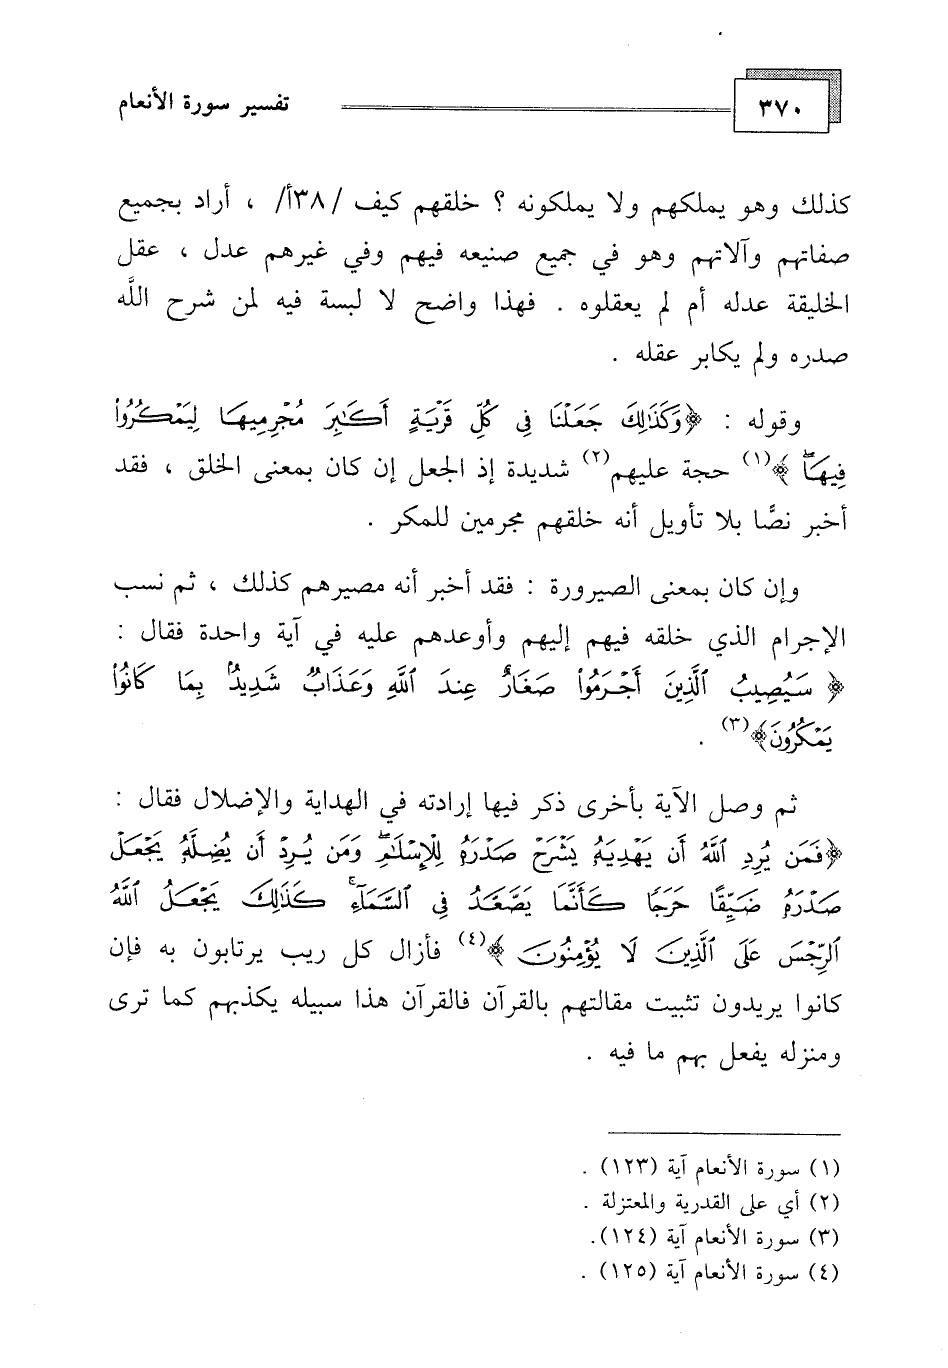 ٣٧٠ تفسير سورة الأنعام
كذلك وهو يملكهم ولا يملكونه ؟ خلقهم كيف /٣٨أ/ ، أراد بجميع
صفاتهم وآلاتهم وهو في جميع صنيعه فيهم وفي غيرهم عدل ، عقل
الخليقة عدله أم لم يعقلوه . فهذا واضح لا لبسة فيه لمن شرح اللَّه
صدره ولم يكابر عقله .
وقوله : ﴿وَكَذَٰلِكَ جَعَلْنَا فِي كُلِّ قَرْيَةٍ أَكَٰبِرَ مُجْرِمِيهَا لِيَمْكُرُوا۟
فِيهَاۖ ﴾(١) حجة عليهم(٢) شديدة إذ الجعل إن كان بمعنى الخلق ، فقد
أخبر نصًّا بلا تأويل أنه خلقهم مجرمين للمكر .
وإن كان بمعنى الصيرورة : فقد أخبر أنه مصيرهم كذلك ، ثم نسب
الإجرام الذي خلقه فيهم إليهم وأوعدهم عليه في آية واحدة فقال :
﴿ سَيُصِيبُ ٱلَّذِينَ أَجْرَمُوا۟ صَغَارٌ عِندَ ٱللَّهِ وَعَذَابٌ شَدِيدٌۢ بِمَا كَانُوا۟
يَمْكُرُونَ﴾(٣) .
ثم وصل الآية بأخرى ذكر فيها إرادته في الهداية والإضلال فقال :
﴿فَمَن يُرِدِ ٱللَّهُ أَن يَهْدِيَهُۥ يَشْرَحْ صَدْرَهُۥ لِلْإِسْلَٰمِۖ وَمَن يُرِدْ أَن يُضِلَّهُۥ يَجْعَلْ
صَدْرَهُۥ ضَيِّقًا حَرَجًا كَأَنَّمَا يَصَّعَّدُ فِي ٱلسَّمَآءِۚ كَذَٰلِكَ يَجْعَلُ ٱللَّهُ
ٱلرِّجْسَ عَلَى ٱلَّذِينَ لَا يُؤْمِنُونَ ﴾(٤) فأزال كل ريب يرتابون به فإن
كانوا يريدون تثبيت مقالتهم بالقرآن فالقرآن هذا سبيله يكذبهم كما ترى
ومنزله يفعل بهم ما فيه .
(١) سورة الأنعام آية (١٢٣) .
(٢) أي على القدرية والمعتزلة .
(٣) سورة الأنعام آية (١٢٤).
(٤) سورة الأنعام آية (١٢٥) .